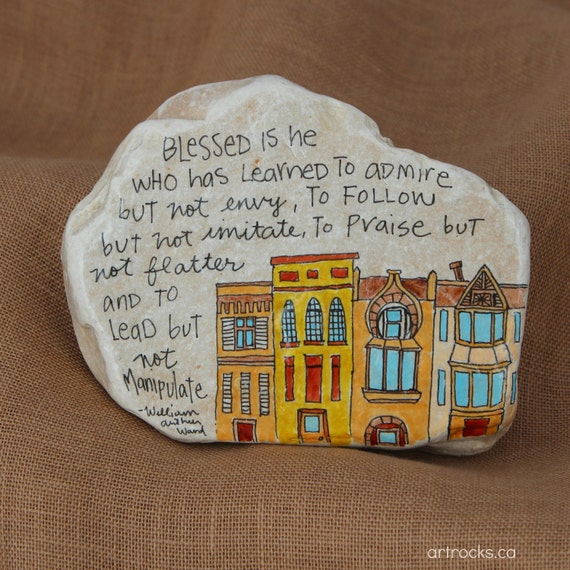 BLESSED IS he
who has Learned To aDmire
but not envy, To FOLLOW
but not imitate, To Praise but
not flatter
AND TO
LEAD but
not
Manipulate
-William
Arthur
Ward
artrocks.ca